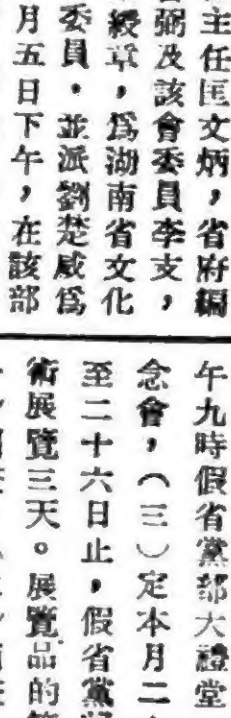 主任匡文炳,省府編
弼及該會委員李支,
綬章,爲湖南省文化
委員。並派劉楚威爲
月五日下午,在該部
午九時假省黨部大禮堂
念會,(三)定本月二
至二十六日止,假省黨部
術展覽三天。展覽品的